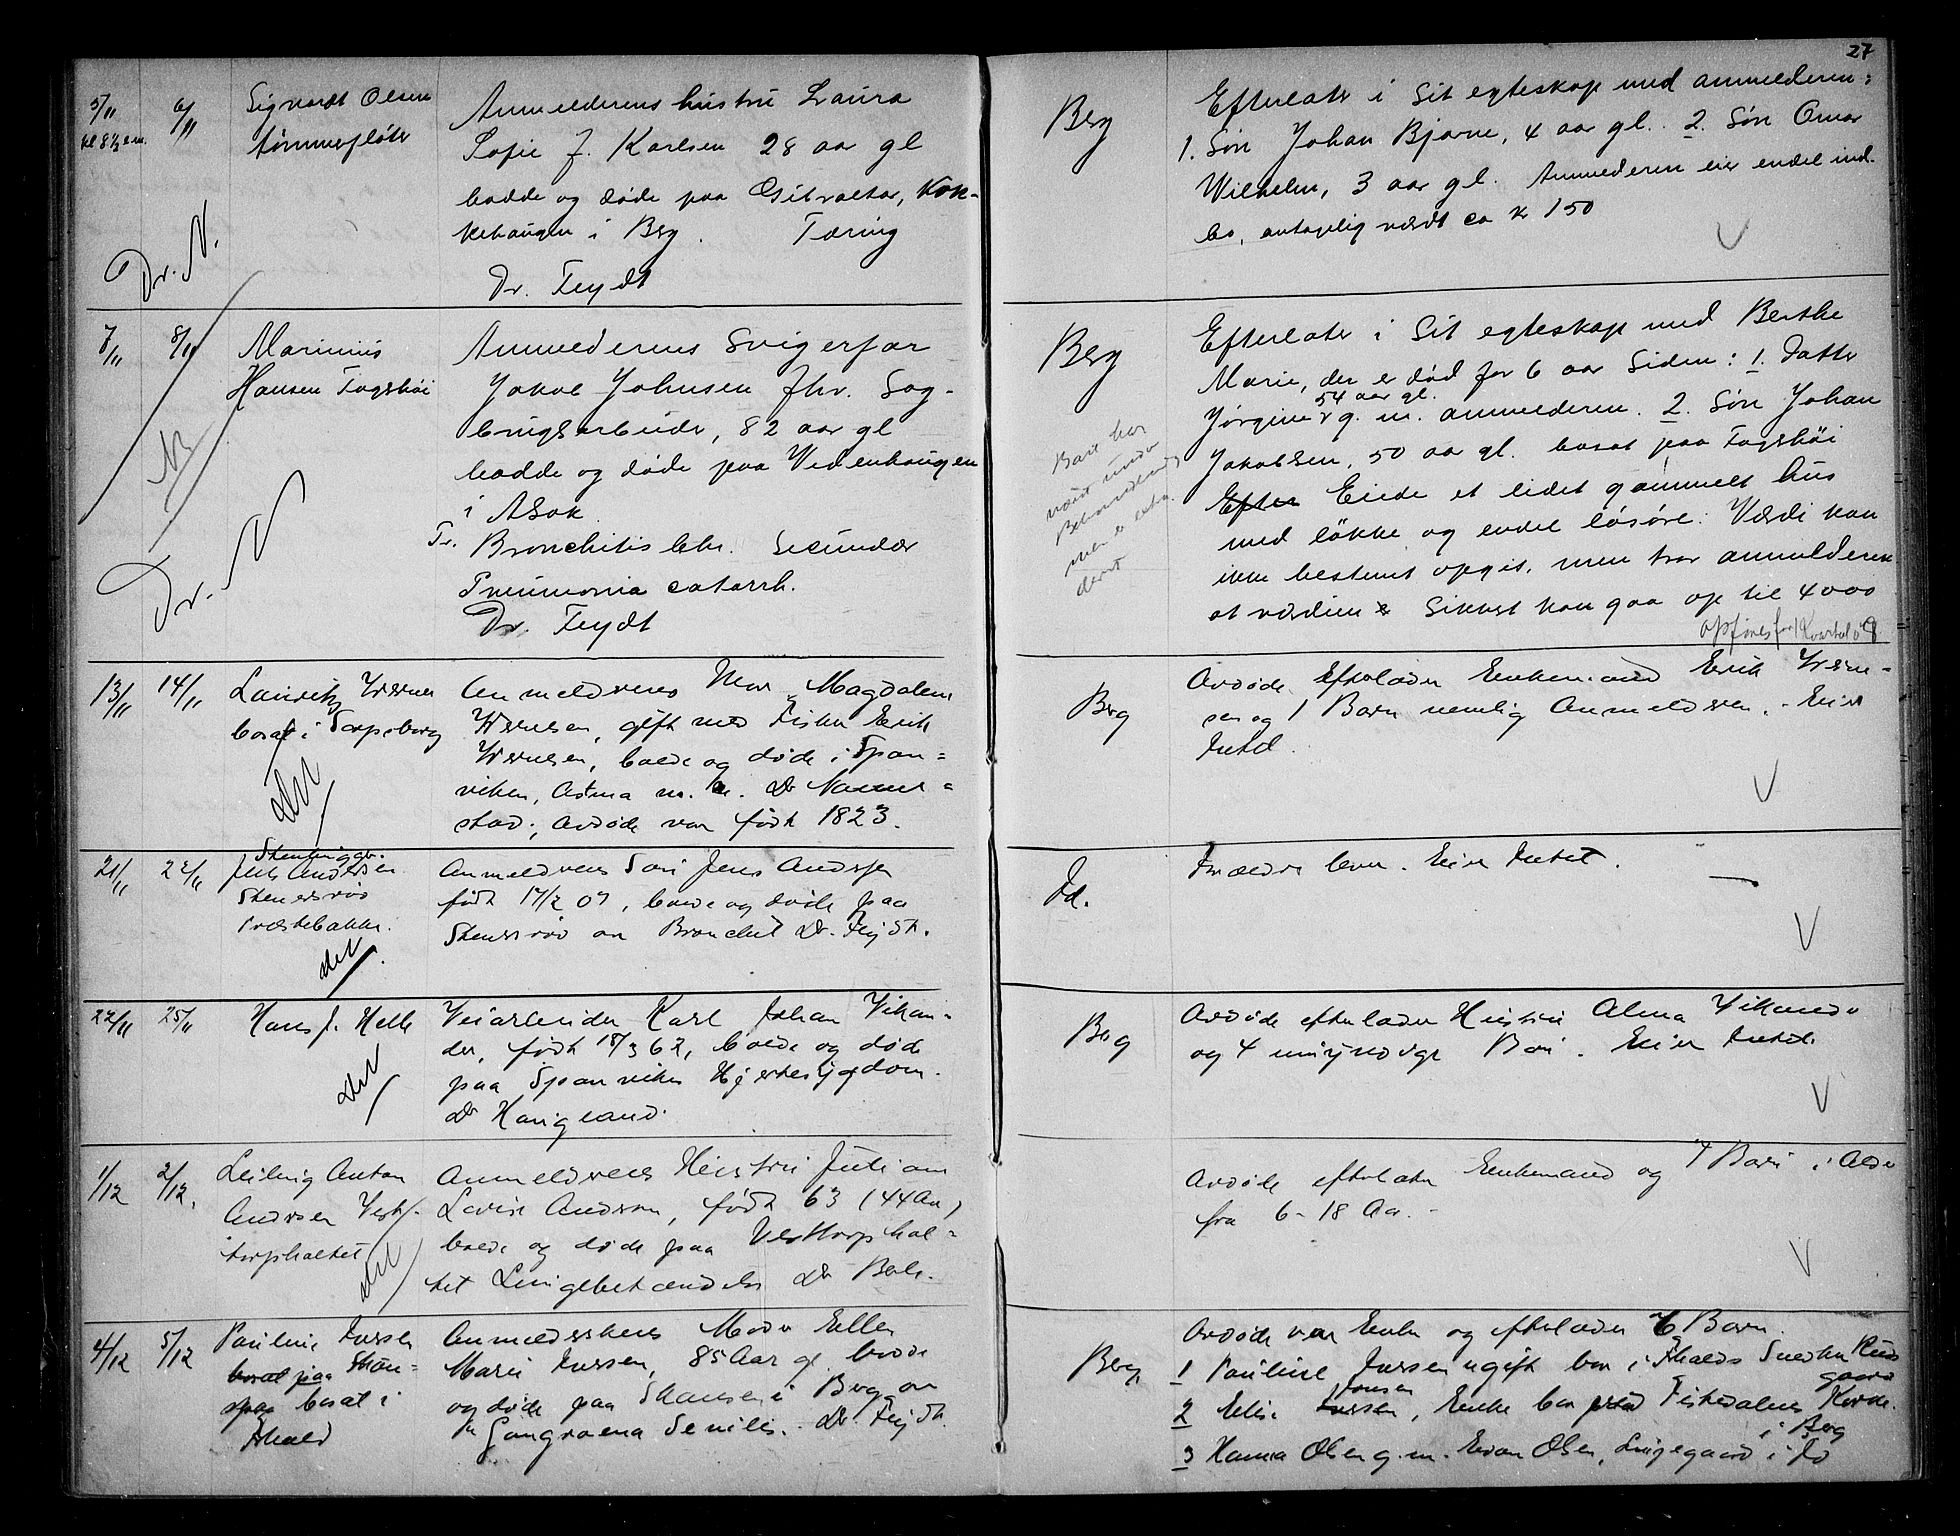 27
5/11
kl 8½ em.
6/11
Sigvardt Olsen
tømmerfløter
Dr. N.
Anmelderens hustru Laura
Sofie J. Karlsen 28 aar gl
bodde og døde paa Gibraltar, Kok-
kehaugen i Berg. Tæring
Dr. Feydt
Berg
Efterlater i Sit egteskap med anmelderen:
1. Søn Johan Bjarne, 4 aar gl. 2. Søn Omar
Wilhelm, 3 aar gl. Anmelderen eier endel ind-
bo, antagelig værdt ca kr 150
7/11
8/11
Marinius
Hansen Fagshöi
Dr. N
Anmelderens Svigerfar
Jakob Johnsen fhv. Sag-
brugsarbeider, 82 aar gl
bodde og døde paa Vedenhaugen
i Asak
Fr. Bronchitis chr. Secundær
Pneumonia catarrh.
Dr. Feydt
Berg
Efterlater i Sit egteskap med Berthe
Marie, der er død for 6 aar Siden: 1. Datter
54 aar gl.
Jørgine g. m. anmelderen. 2. Søn Johan
Jakobsen, 50 aar gl. bosat paa Fagshöi
Efter Eiede et lidet gammelt hus
med løkke og endel løsøre. Værdi kan
ikke bestemt opgis, men tror anmelderen
at værdien Sikkert kan gaa op til 4000
opføres for 1 Kvartal 08
13/11
14/11
Lauritz Iversen
bosat i Sarpsborg
Anmelderens Mor Magdalene
Iversen, gift med Fisker Erik
Iversen, boede og døde i Spon-
viken, Astma m. m. Dr
stad; Avdøde var født 1823.
Berg
Avdøde Efterlader Enkemand Erik Iver-
sen og 1 Barn nemlig Anmelderen. Eier
Intet.
21/11
22/11
Stenhugger
Jens Andersen
Stenersrød
Præstebakke.
Anmelderens Søn Jens Andersen
født 17/2 07, boede og døde paa
Stenersrød av Bronchit Dr. Feydt.
Id.
Forældre lever. Eier Intet.
22/11
25/11
Hans J. Helle
Veiarbeider Karl Johan Vikan-
der, født 18/3 62, boede og døde
paa Sponviken Hjertesygdom.
Dr Haugland.
Berg
Avdøde efterlader Hustru Alma Vikander
og 4 umyndige Børn. Eier Intet.
1/12
2/12.
Anton
Andersen Vest-
torphaltet
Anmelderens Hustru Juliane
Lovise Andersen, født 63 (44 Aar)
boede og døde paa Vesttorphal-
tet Lungebetændelse Dr Bak.
Avdøde efterlater Enkemand og 7 Børn i Alder
fra 6-18 Aar.
4/12
5/12
Pauline Iversen
bosat paa
bosat i
Fhald
Anmelderskens Moder Ellen
Marie Iversen, 85 Aar gl. boede
og døde paa Skansen i Berg av
Gangraena Senilis. Dr. Feydt.
Berg.
Avdøde var Enke og efterlader 6 Børn.
1 Pauline Iversen ugift bor i Fhalds
2 Elise Jonsen, Enke bor
i Berg
3 Hanna Olsen g. m. Evan Olsen, Lugegaard i Id